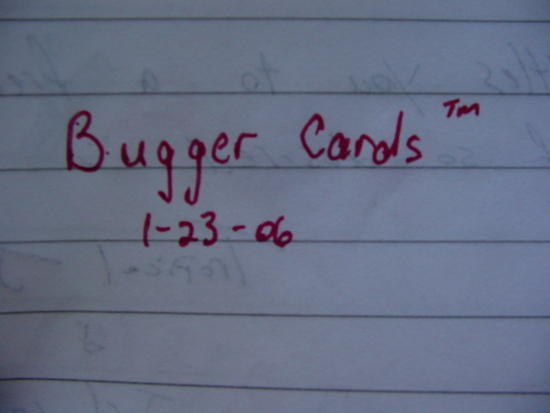 Bugger Cards™
1-23-06